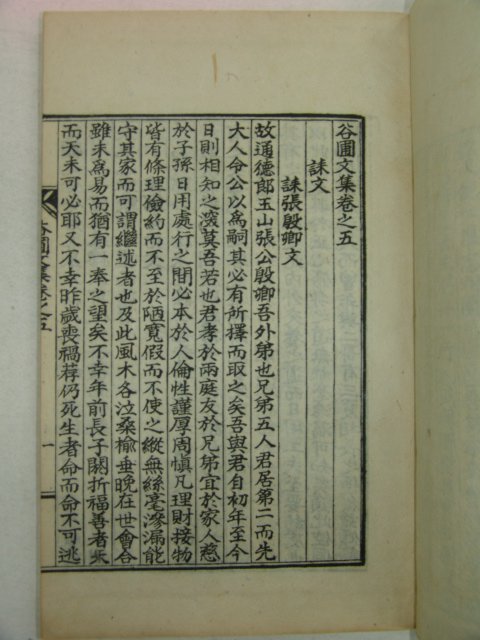 谷圃文集卷之五
誄文
誄張殷卿文
故通德郎玉山張公殷卿吾外弟也兄弟五人君居第二而先
大人令公以爲嗣其必有所擇而取之矣吾與君自初年至今
日則相知之深莫吾若也君孝於兩庭友於兄弟宜於家人慈
於子孫日用處行之間必本於人倫性謹厚周愼凡理財接物
皆有條理儉約而不至於陋寬假而不使之縱無絲毫滲漏能
守其家而可謂繼述者也及此風木各泣桑楡垂晩在世會合
雖未爲易而猶有一奉之望矣不幸年前長子閼折福善者天
而天未可必耶又不幸昨歲喪禍荐仍死生者命而命不可逃
谷圃文集卷之五
一